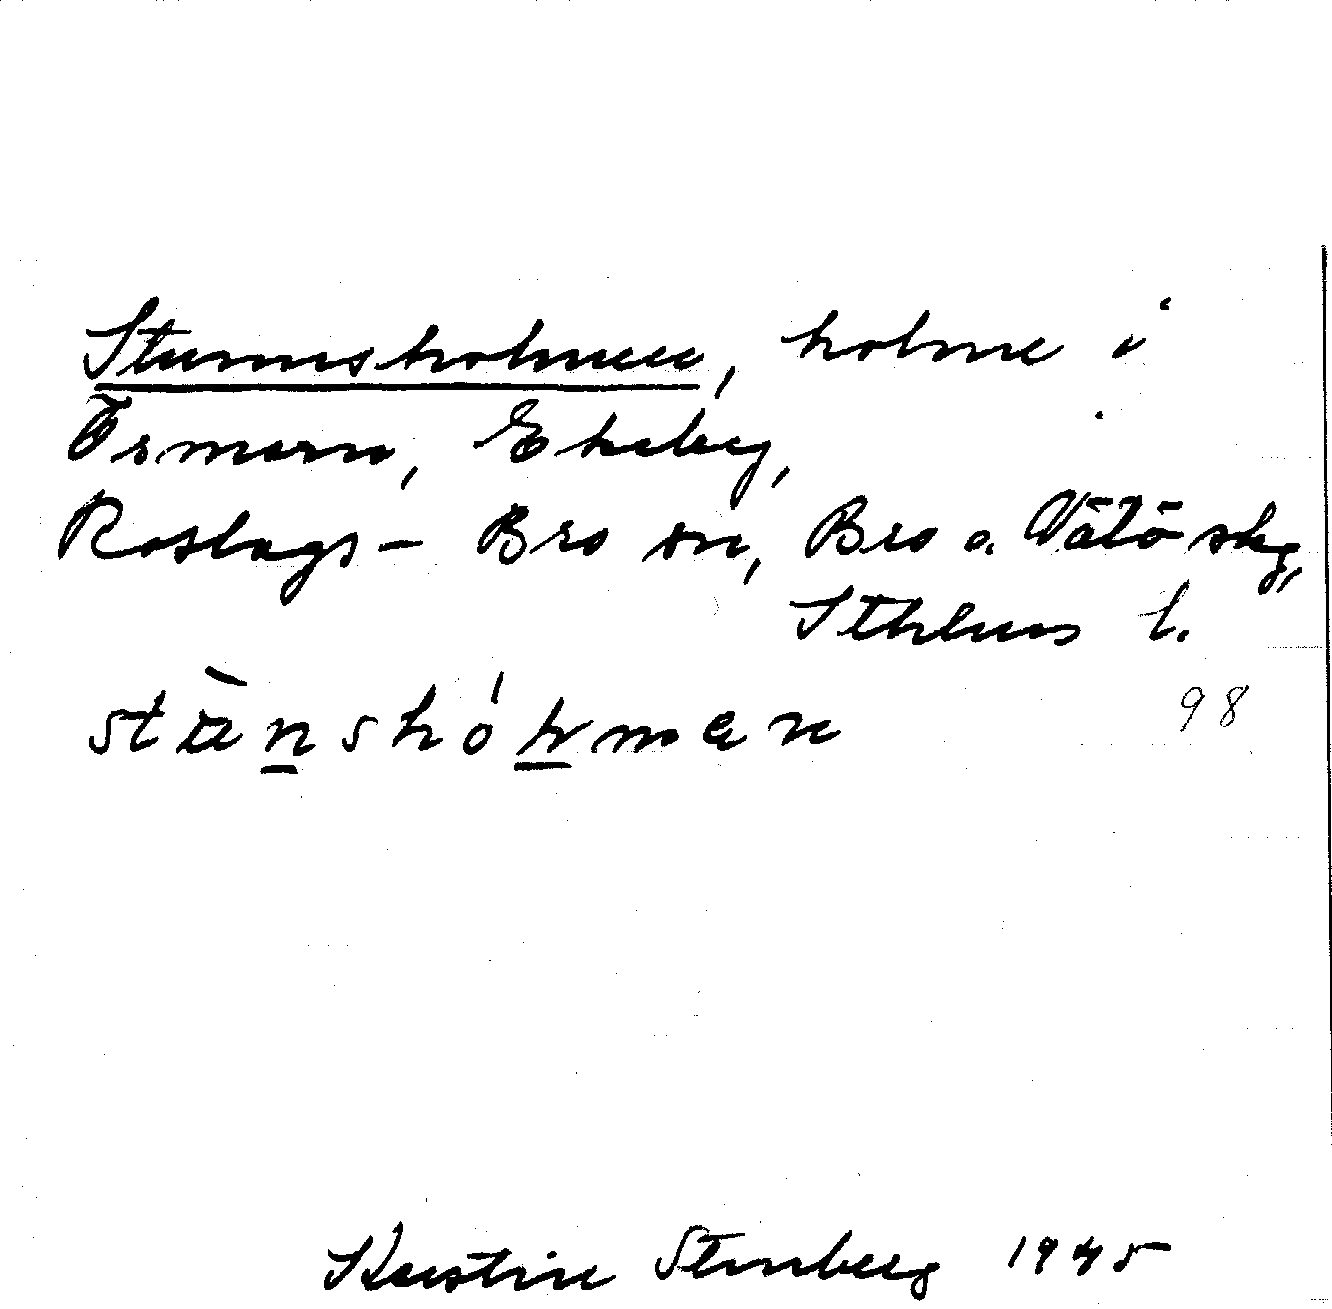 Stumsholmen, holme i
Ösmaren, Ekeby,
Roslags-Bro sn, Bro o. Vätö skg,
Sthlms l.
98
Kerstin Stenberg 1945